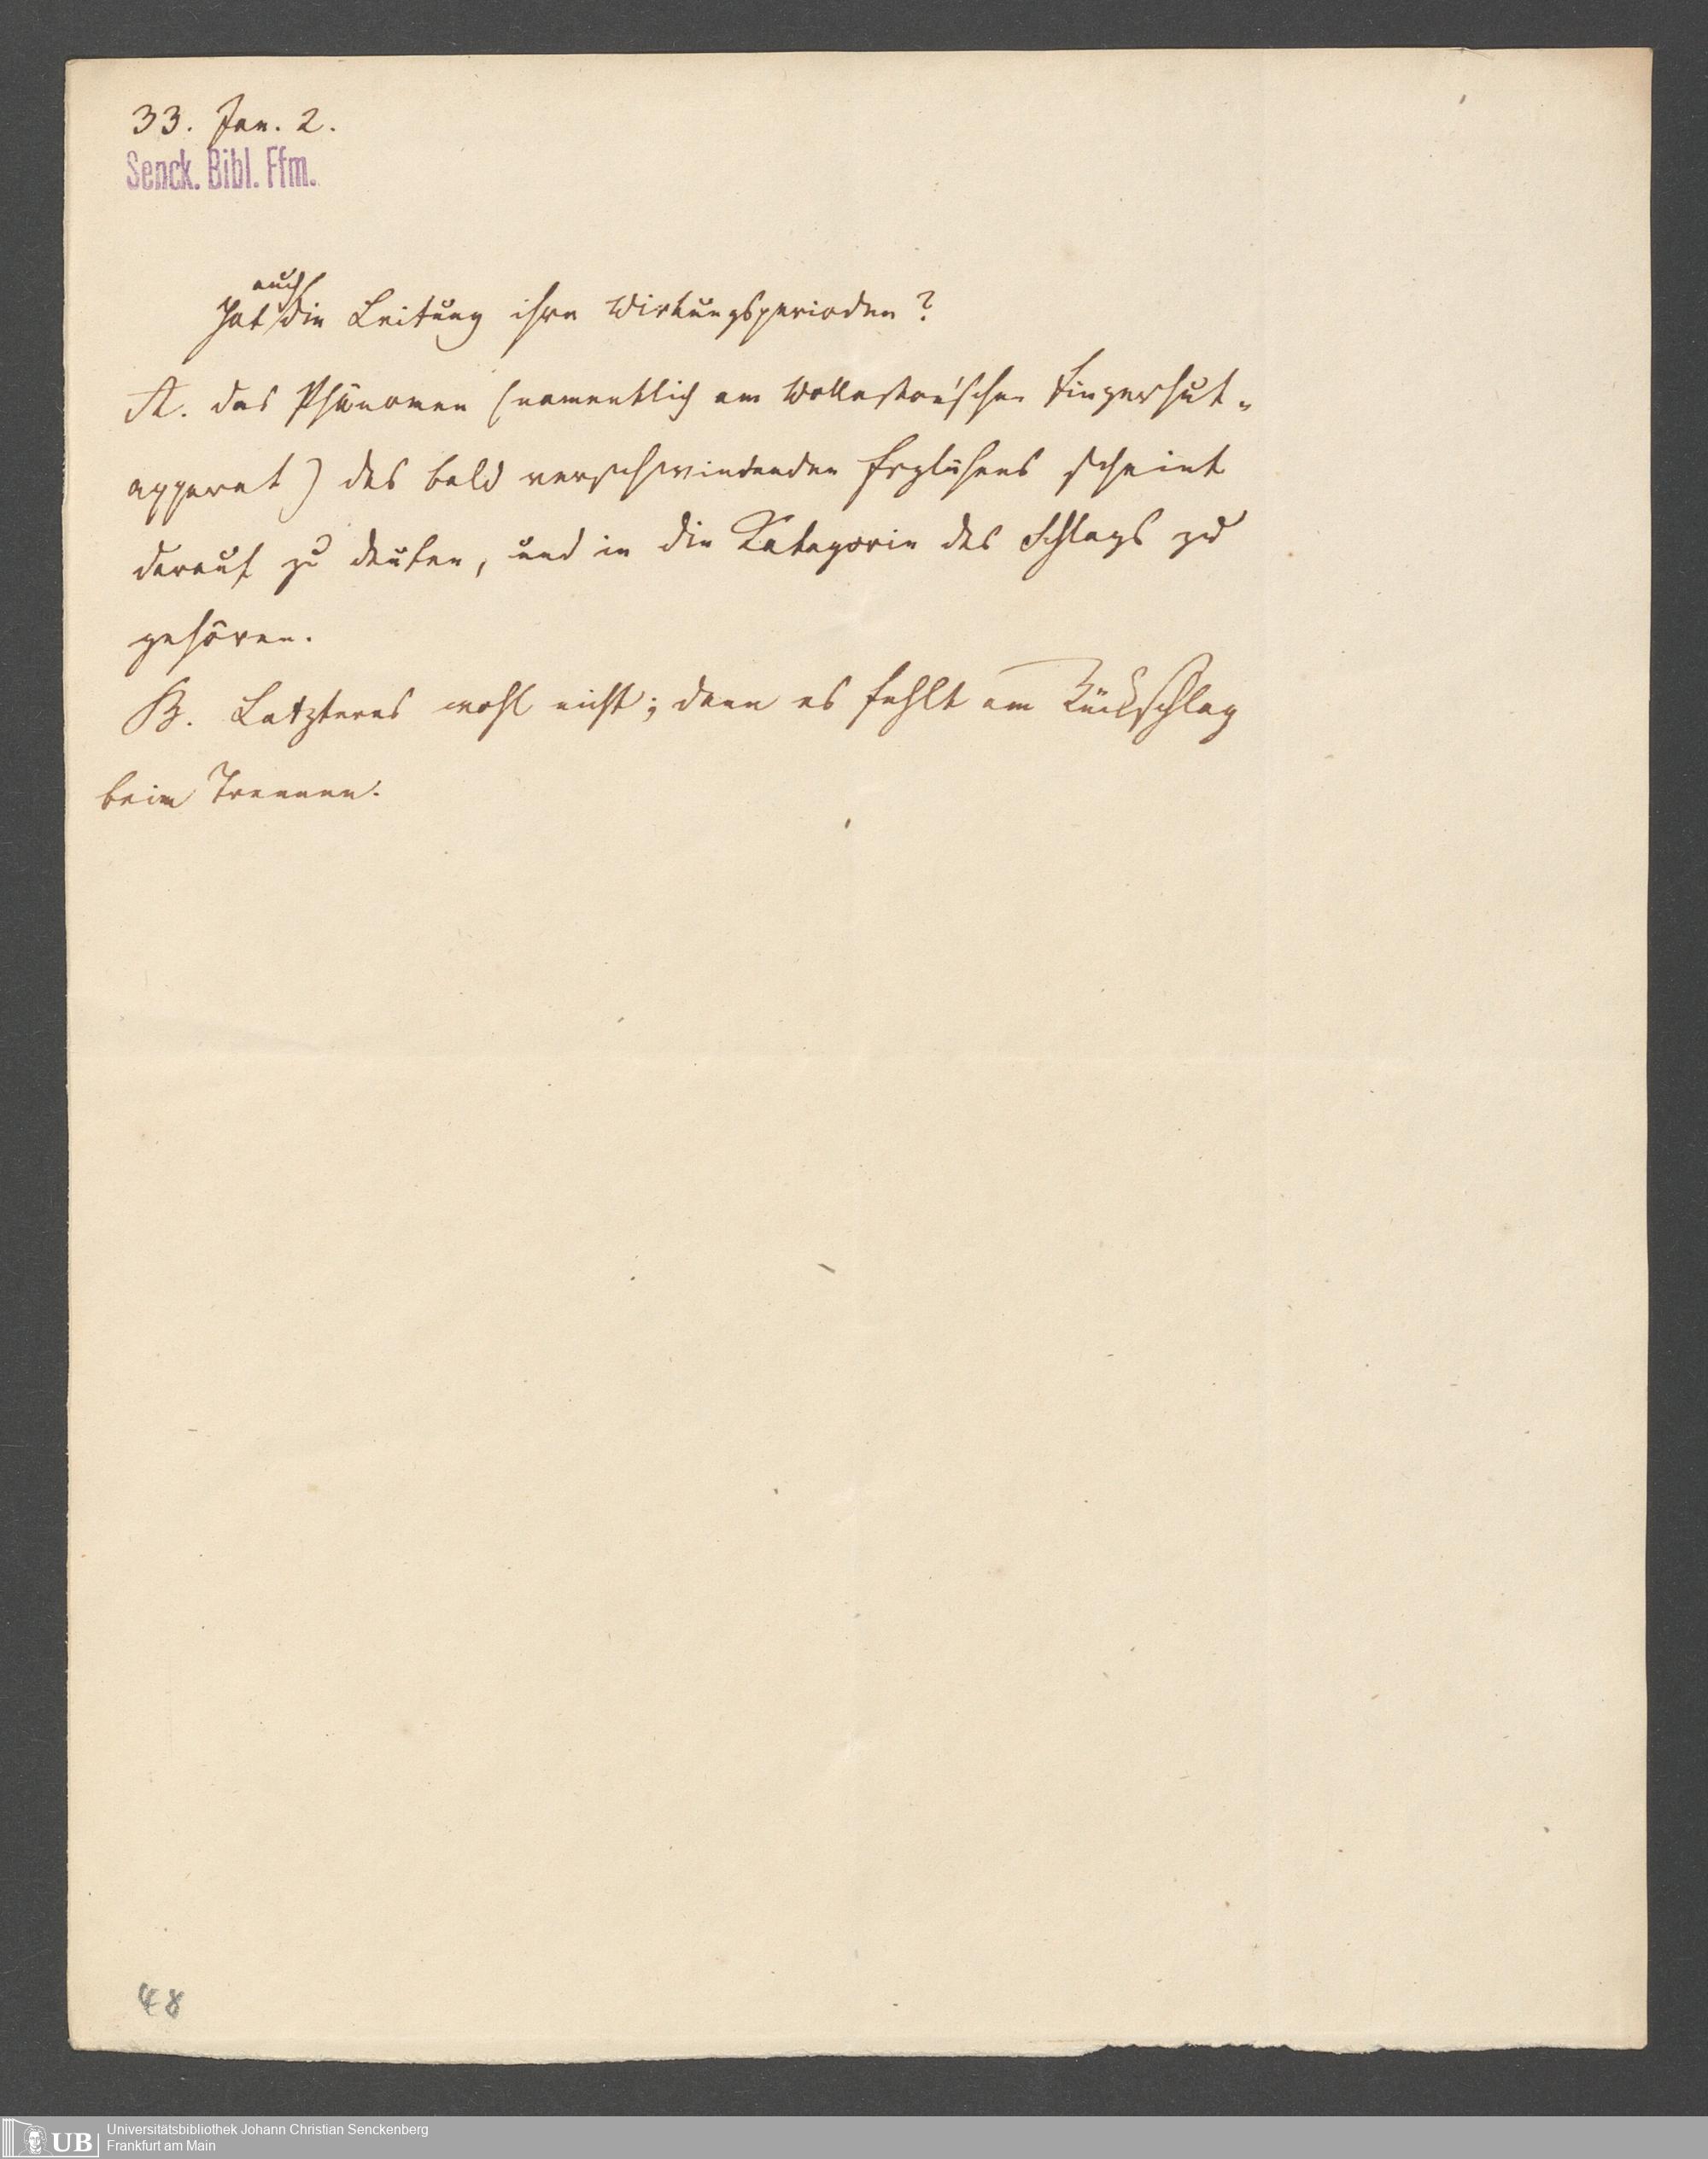 33. Jan. 2.
Senck. Bibl. Ffm.
auch
Hat die Leitung ihre Wirkungsperioden?
A. das Phänomen (namentlich am Wollaston'schen Fingerhut-
apparat) des bald verschwindenden Erglühens scheint
darauf zu deuten, und in die Kategorie des Schlags zu
gehören.
B. Letzteres wohl nicht; denn es fehlt am Rückschlag
beim Trennen.
48
UB
Universitätsbibliothek Johann Christian Senckenberg
Frankfurt am Main